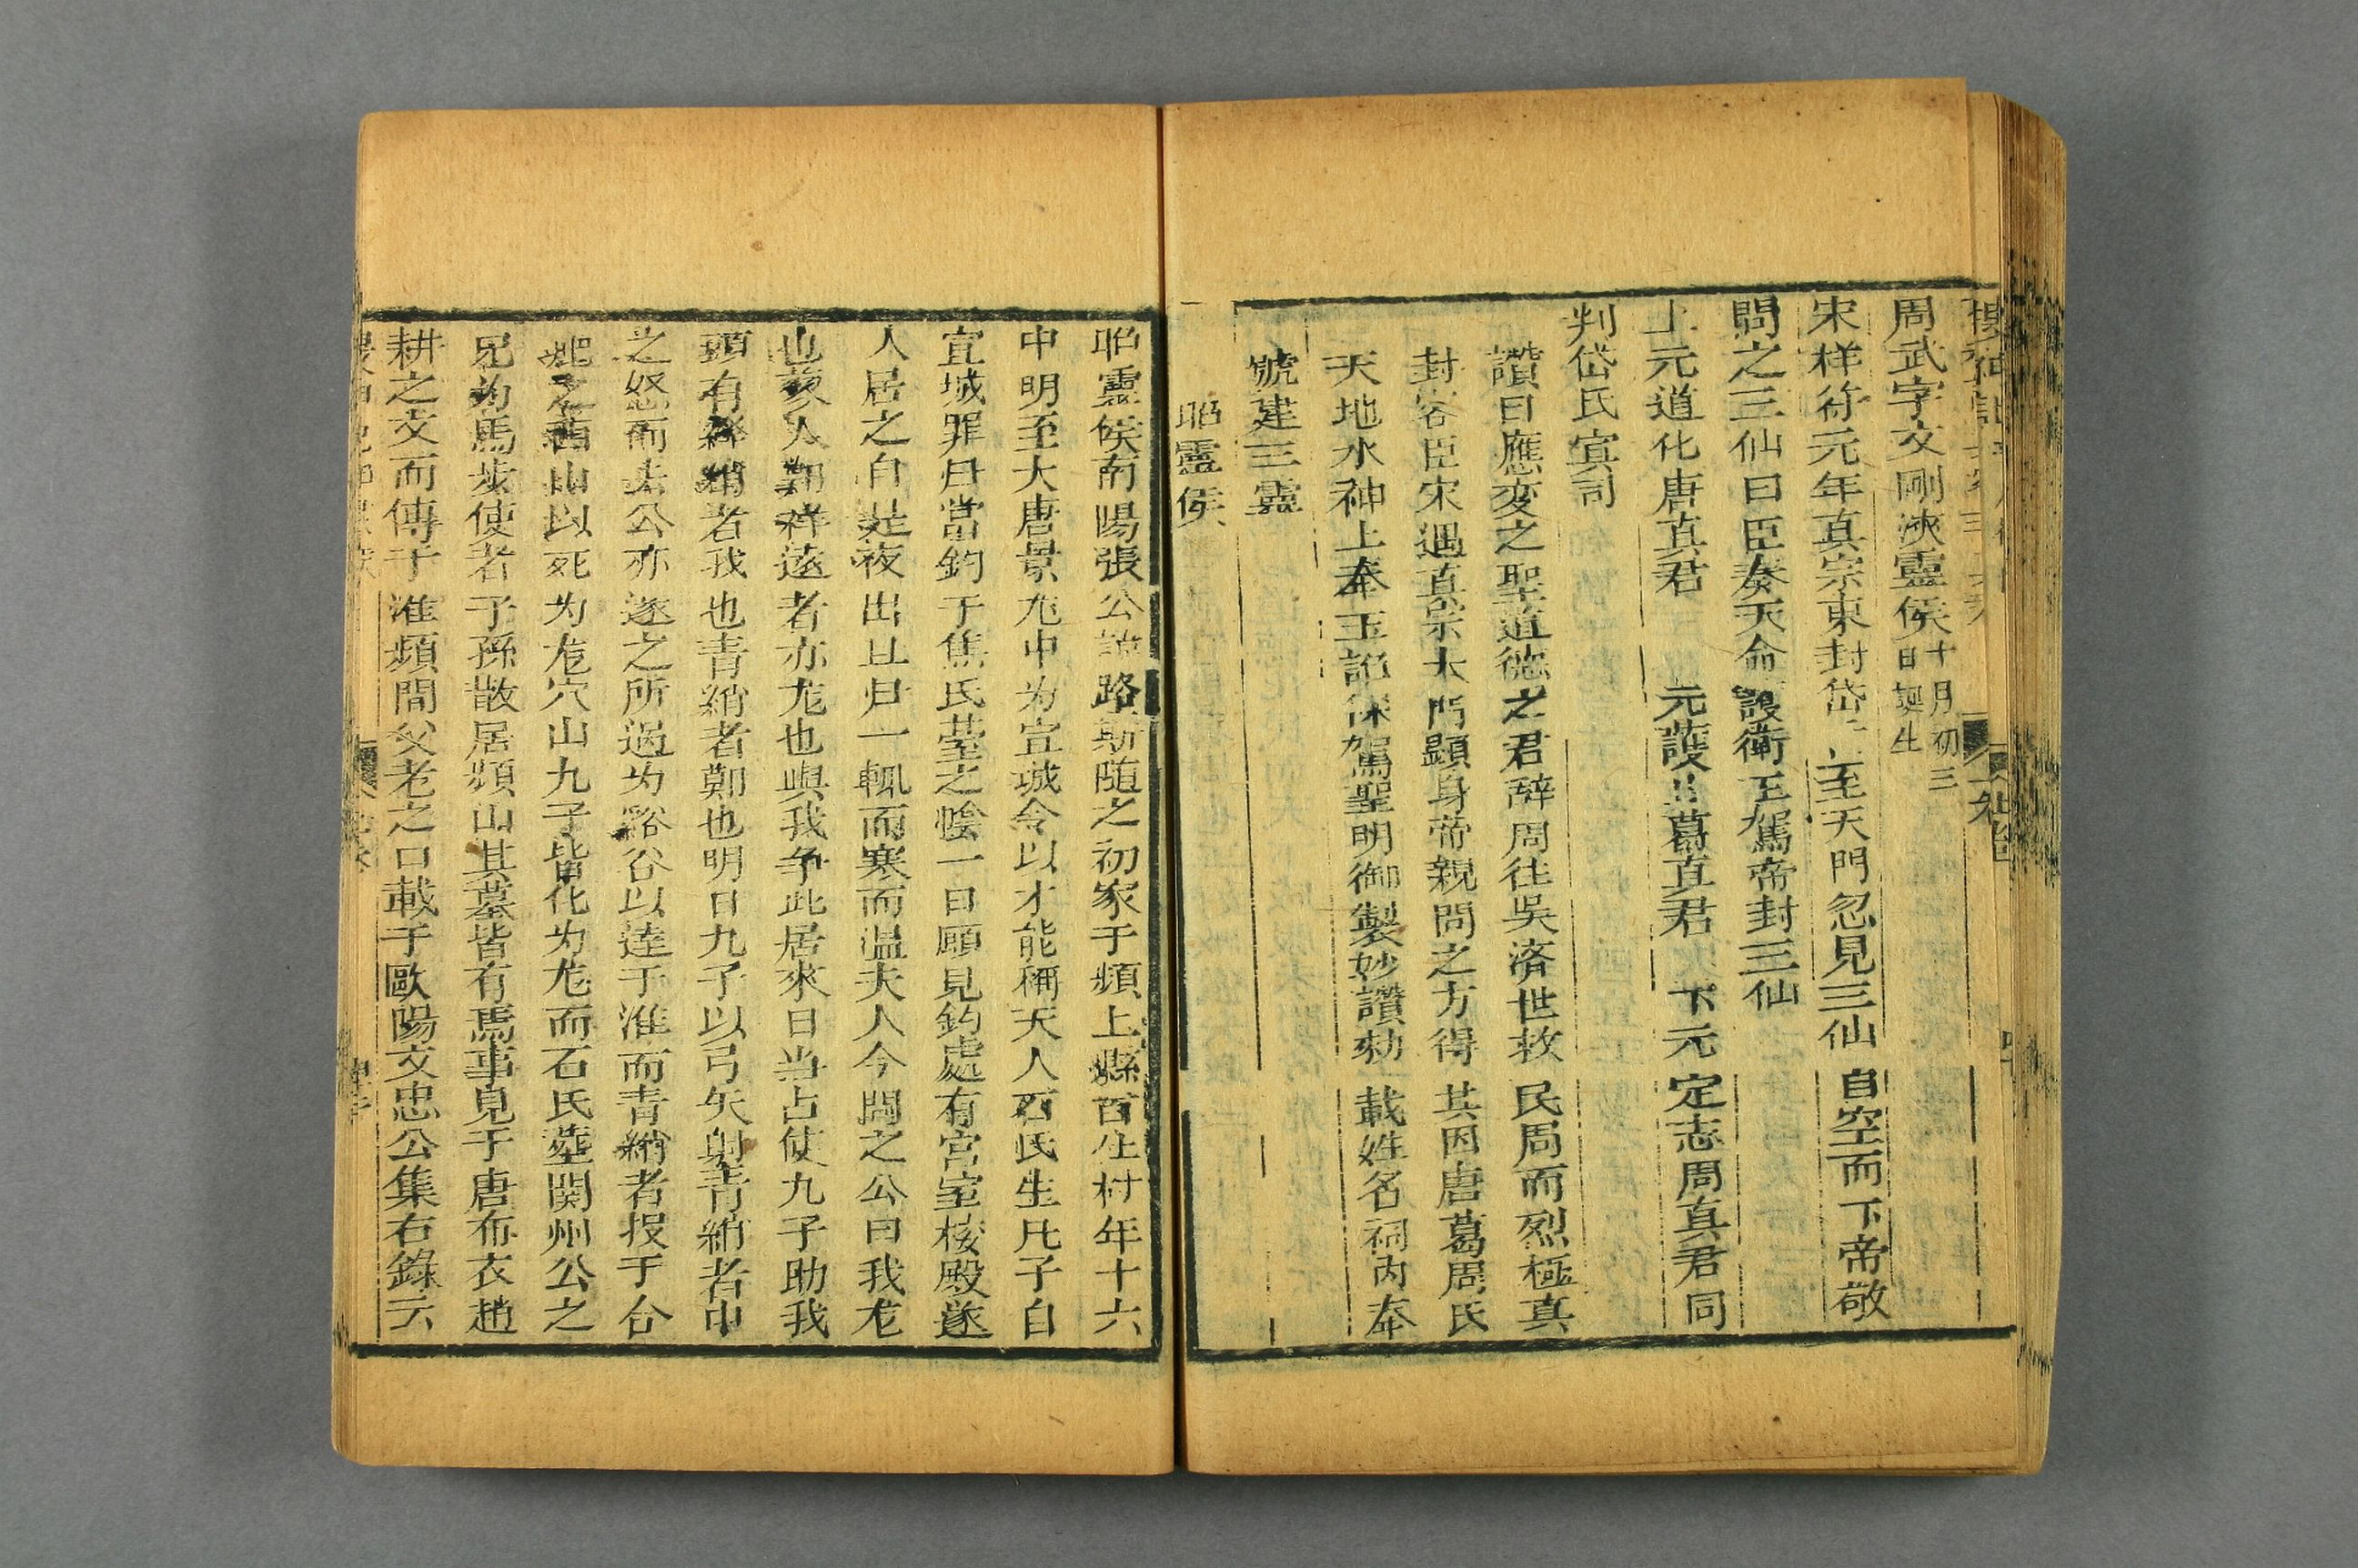 周武字文剛浹靈侯十月初三日誕生
宋祥符元年真宗東封岱至天門忽見三仙自空而下帝敬
問之三仙曰臣奏天命護衛玉駕帝封三仙
上元道化唐真君 元護正葛真君 下元定志周真君同
判岱氏㝠司
讚曰應变之聖道德之君辭周往吳済世救民局而烈極真
封客臣宋遇真宗大門顕身帝親問之方得其因唐葛周氏
天地水神上奉玉詔保駕聖明御製妙讚勑載姓名祠内奉
號建三靈
昭靈侯
昭靈侯南陽張公諱路斯随之初家于頻上縣百社村年十六
中明至大唐景尨中为宜城令以才能稱天人石氏生九子自
宜城罪归當釣于焦氏䓝之隂一日顧見釣處有宫室楼殿遂
人居之自是夜出旦归一輒而寒而温夫人今問之公曰我尨
也蓼人鄭祥遠者亦尨也與我争此居來日当占使九子助我
頭有絳綃者我也青綃者鄭也明日九子以弓矢射青綃者中
之怒而去公亦遂之所過为谿谷以逹于淮而青綃者投于合
淝之西山以死为尨穴山九子皆化为尨而石氏塟関州公之
兄为馬步使者子孫散居頻山其墓皆有焉事見于唐布衣趙
耕之文而傳于淮頻間父老之口載于歐陽文忠公集右錄云